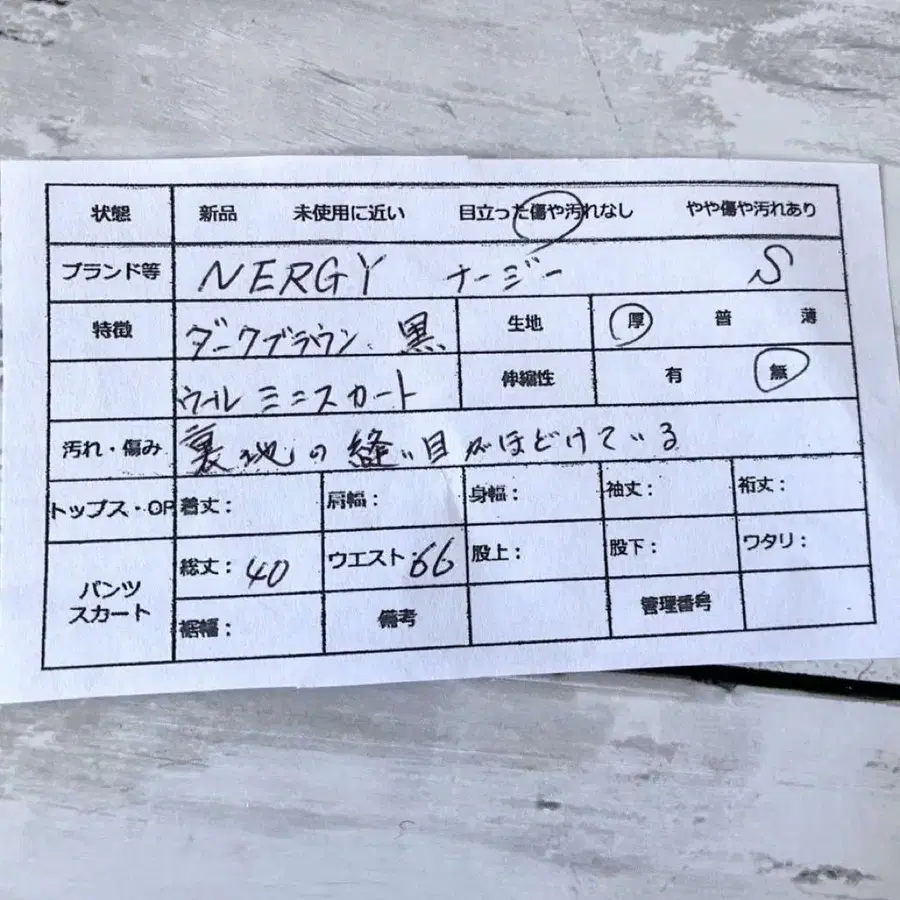 状態 新品 未使用に近い 目立った傷や汚れなし やや傷や汚れあり
ブランド等 NERGY ナージー S
特徴 ダークブラウン、黒 生地 厚 普 薄
ウール ミニスカート 伸縮性 有 無
汚れ・傷み 裏地の縫い目がほどけている
トップス・OP 着丈: 肩幅: 身幅: 袖丈: 裄丈:
パンツ スカート 総丈: 40 ウエスト: 66 股上: 股下: ワタリ:
裾幅: 備考 管理番号